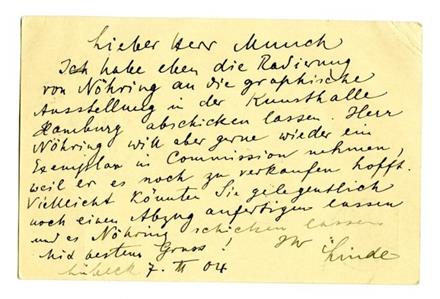 Lieber Herr Munch
Ich habe eben die Radierung
von Nöhring an die graphische
Ausstellung in der Kunsthalle
Hamburg abschicken lassen. Herr
Nöhring will aber gerne wieder ein
Exemplar in Commission nehmen,
weil er es noch zu verkaufen hofft.
Vielleicht könnten Sie gelegentlich
noch einen Abzug anfertigen lassen
und es Nöhring schicken lassen
Mid bestem Gruss! Ihr Linde
Lübeck 7. II 04